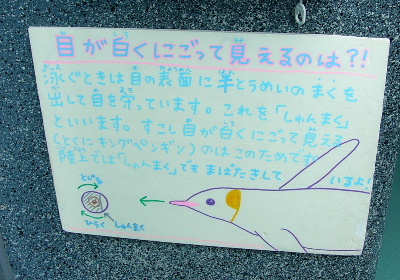 目が白くにごって見えるのは?!
泳ぐときは目の表面に半とうめいのまくを
出して目を守っています。これを「しゅんまく」
といいます。すこし目が白くにごって見える
(とくにキングペンギン)のはこのためです。
陸上では「しゅんまく」でもまばたきして
いるよ!
とじる
ひらく
しゅんまく